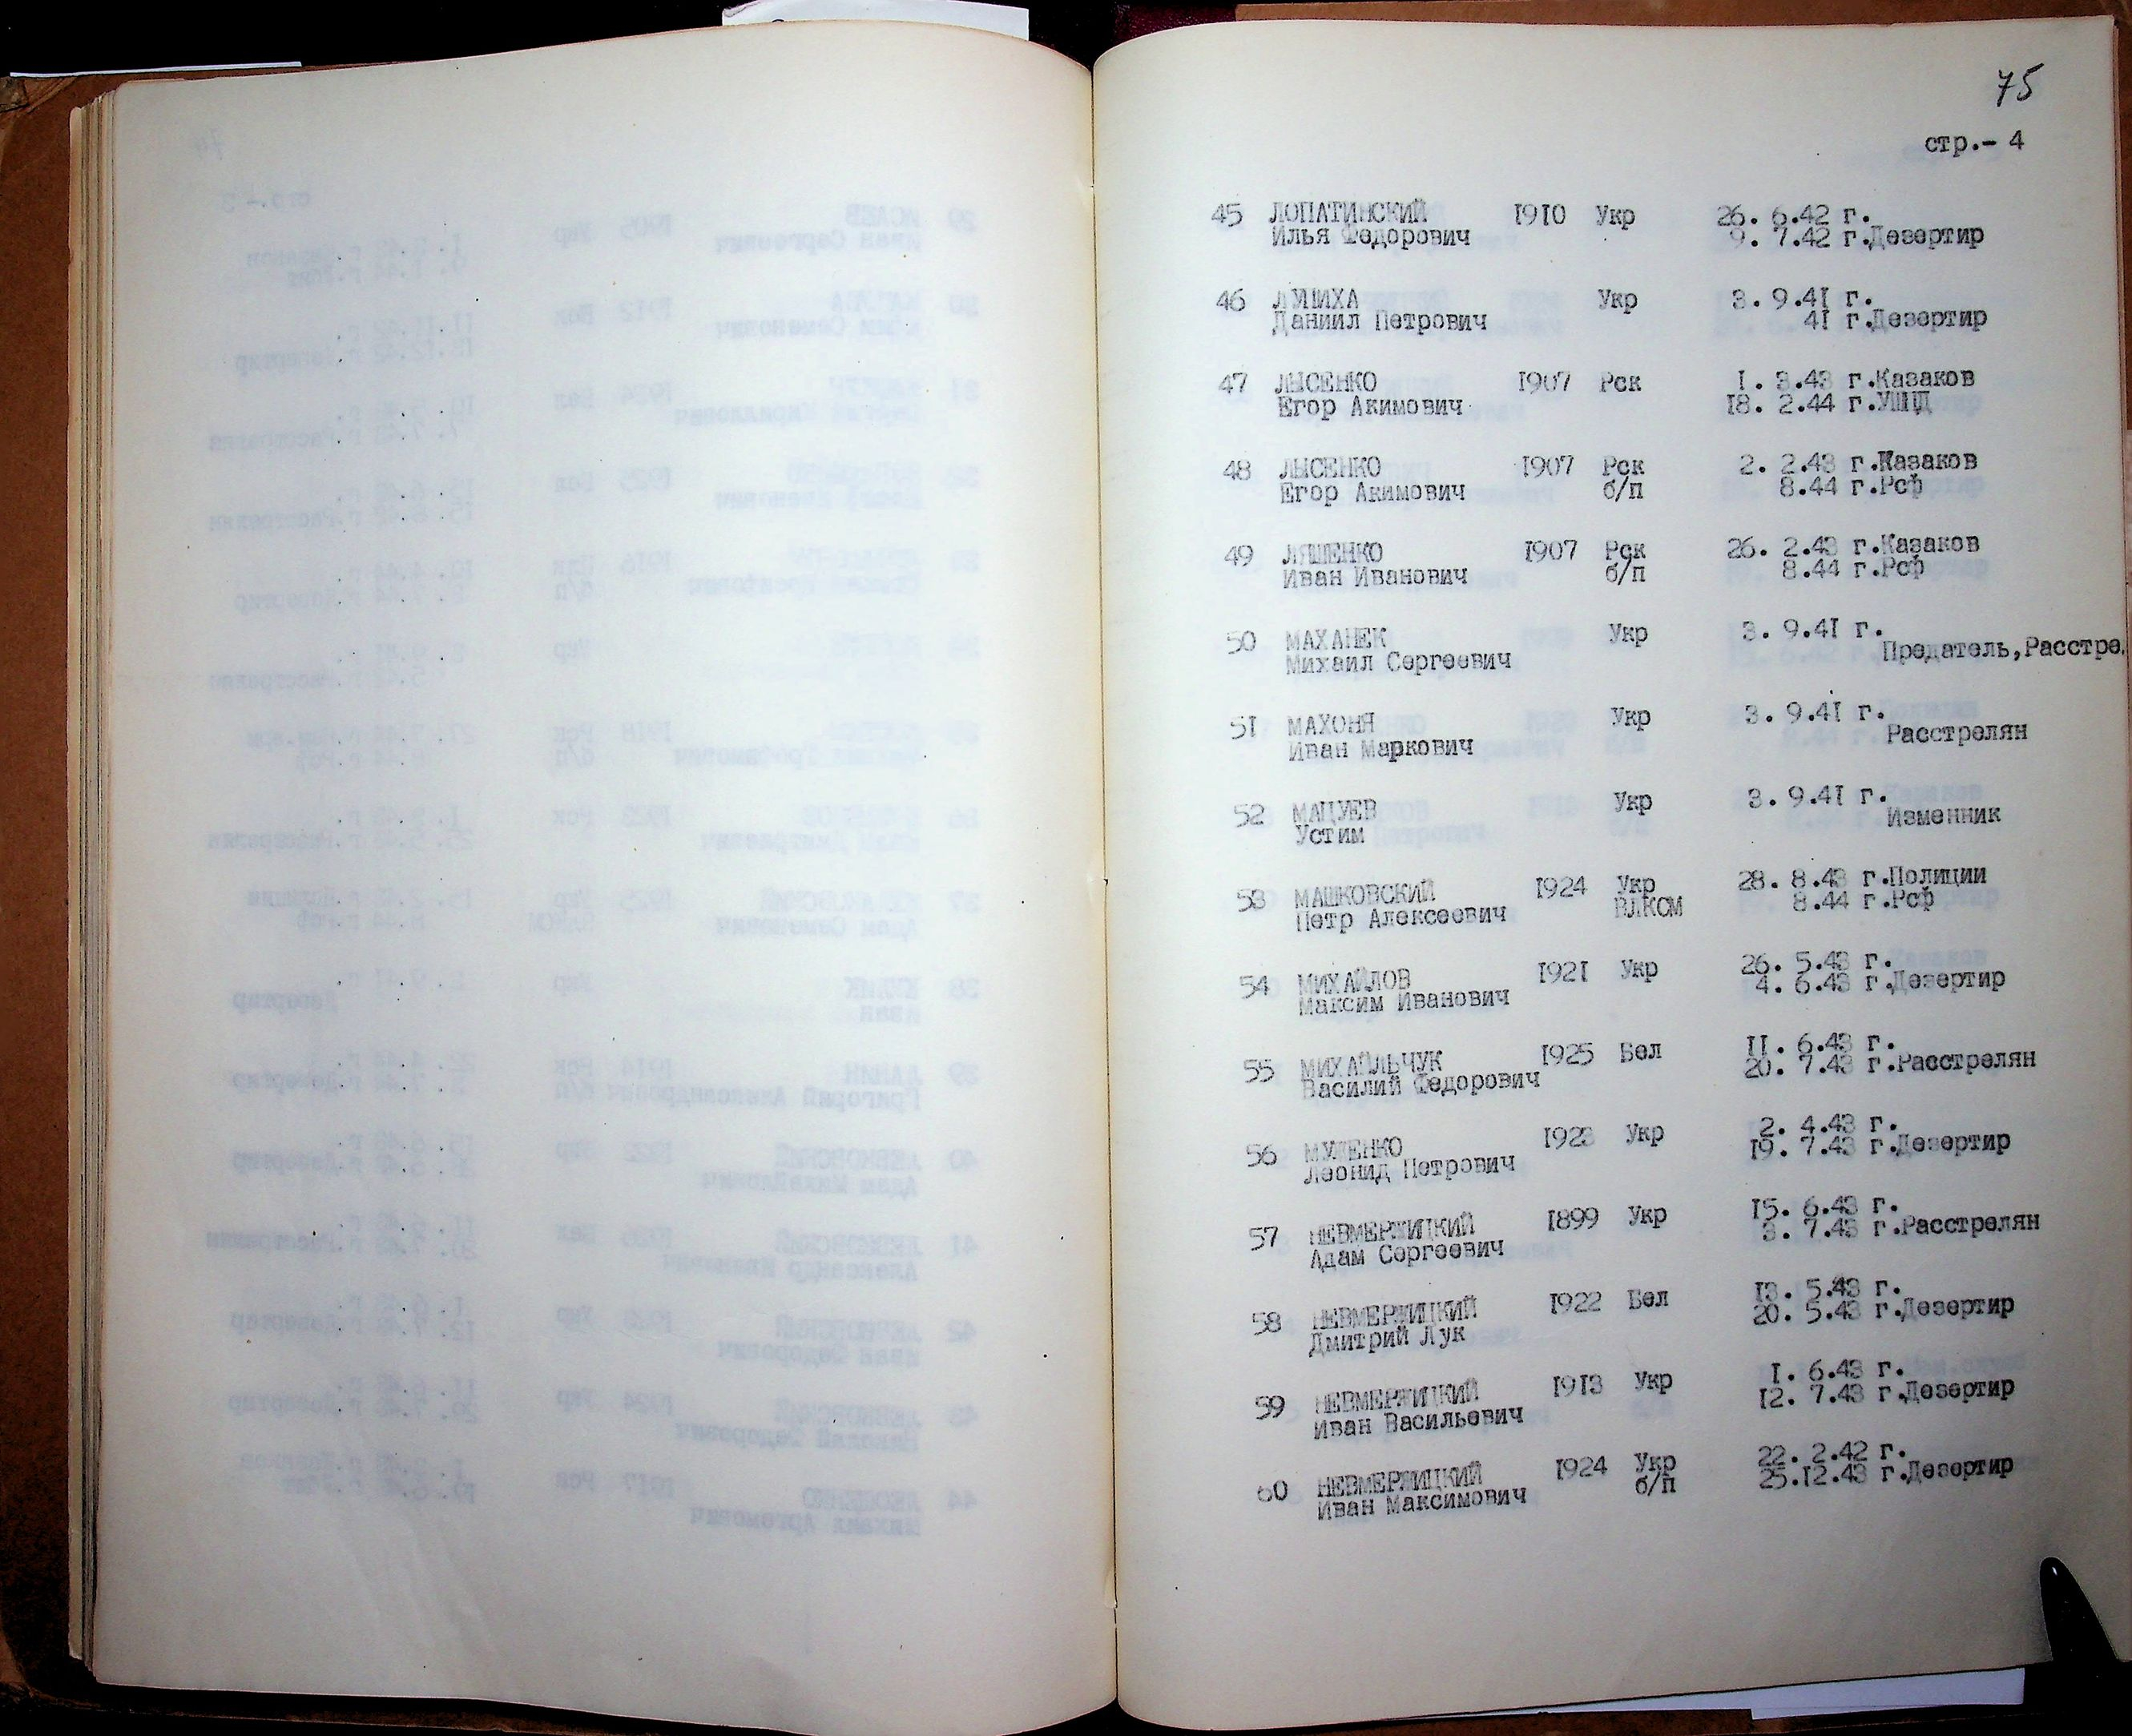 75
стр.- 4
45 ЛОПАТИНСКИЙ 1910 Укр 26. 6.42 г.
Илья Федорович 9. 7.42 г.Дезертир
46 Укр 3. 9.41 г.
Даниил Петрович 41 г.Дезертир
47 ЛЫСЕНКО 1907 Рск 1. 3.43 г.Казаков
Егор Акимович 18. 2.44 г.УШПД
48 ЛЫСЕНКО 1907 Рск 2. 2.43 г.Казаков
Егор Акимович б/п 8.44 г.Рсф
49 ЛЯШЕНКО 1907 Рск 26. 2.43 г.Казаков
Иван Иванович б/п 8.44 г.Рсф
50 МАХАНЕК Укр 3. 9.41 г.
Михаил Сергеевич Предатель,Расстре.
51 МАХОНЯ Укр 3. 9.41 г.
Иван Маркович Расстрелян
52 МАЦУЕВ Укр 3. 9.41 г.
Устим Изменник
53 МАШКОВСКИЙ 1924 Укр 28. 8.43 г.Полиции
Петр Алексеевич ВЛКСМ 8.44 г.Рсф
54 МИХАЙЛОВ 1921 Укр 26. 5.43 г.
Максим Иванович 4. 6.43 г.Дезертир
55 МИХАЙЛЬЧУК 1925 Бел 11. 6.43 г.
Василий Федорович 20. 7.43 г.Расстрелян
56 1923 Укр 2. 4.43 г.
Леонид Петрович 19. 7.43 г.Дезертир
57 НЕВМЕРЖИЦКИЙ 1899 Укр 15. 6.43 г.
Адам Сергеевич 3. 7.43 г.Расстрелян
58 НЕВМЕРЖИЦКИЙ 1922 Бел 13. 5.43 г.
Дмитрий Лук 20. 5.43 г.Дезертир
59 НЕВМЕРЖИЦКИЙ 1913 Укр 1. 6.43 г.
Иван Васильевич 12. 7.43 г.Дезертир
60 НЕВМЕРЖИЦКИЙ 1924 Укр 22. 2.42 г.
Иван Максимович б/п 25.12.43 г.Дезертир